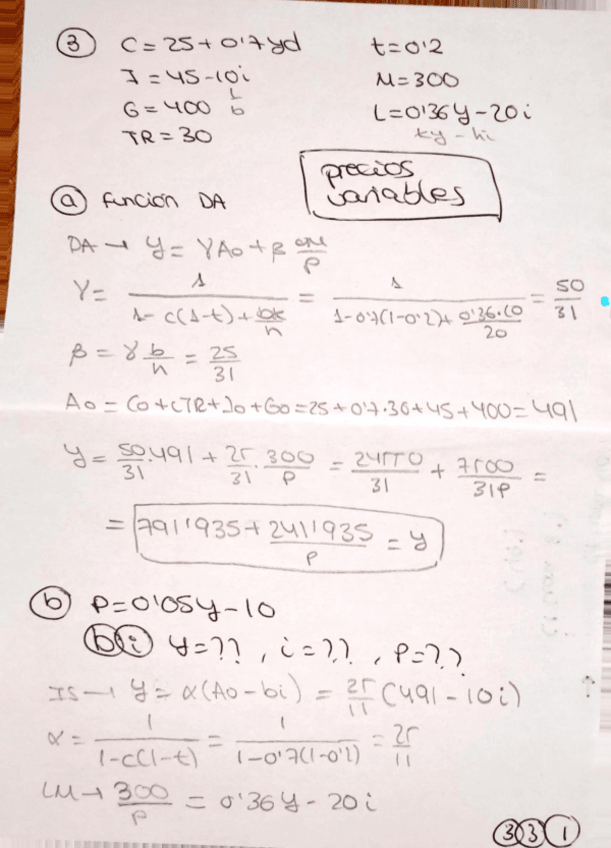 3 C = 25 + 0'7yd t = 0'2
I = 45 - 10i M = 300
G = 400 b L = 0'36y - 20i
TR = 30 ky - hi
precios
variables
a función DA
DA → y = γAo + β M/P
γ = 1/(1 - c(1-t) + bk/h) = 1/(1 - 0'7(1-0'2) + 0'36·10/20) = 50/31
β = γ b/h = 25/31
Ao = Co + cTR + Io + Go = 25 + 0'7·30 + 45 + 400 = 491
y = 50/31·491 + 25/31·300/P = 24550/31 + 7500/31P =
= 791'935 + 241'935/P = y
b P = 0'05y - 10
bi y = ??, i = ??, P = ??
IS → y = α(Ao - bi) = 25/11 (491 - 10i)
α = 1/(1-c(1-t)) = 1/(1-0'7(1-0'2)) = 25/11
LM → 300/P = 0'36y - 20i
331